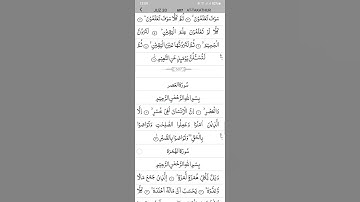 JUZ 30 AT-TAKATHUR
تَعْلَمُوْنَ ۙ ثُمَّ كَلَّا سَوْفَ تَعْلَمُوْنَ ؕ
كَلَّا لَوْ تَعْلَمُوْنَ عِلْمَ الْيَقِيْنِ ؕ لَتَرَوُنَّ
الْجَحِيْمَ ۙ ثُمَّ لَتَرَوُنَّهَا عَيْنَ الْيَقِيْنِ ۙ ثُمَّ
لَتُسْـَٔلُنَّ يَوْمَئِذٍ عَنِ النَّعِيْمِ
سُوْرَةُ الْعَصْرِ
بِسْمِ اللّٰهِ الرَّحْمٰنِ الرَّحِيْمِ
وَالْعَصْرِ ۙ اِنَّ الْاِنْسَانَ لَفِيْ خُسْرٍ ۙ اِلَّا
الَّذِيْنَ اٰمَنُوْا وَعَمِلُوا الصّٰلِحٰتِ وَتَوَاصَوْا
بِالْحَقِّ ۙ وَتَوَاصَوْا بِالصَّبْرِ
سُوْرَةُ الْهُمَزَةِ
بِسْمِ اللّٰهِ الرَّحْمٰنِ الرَّحِيْمِ
وَيْلٌ لِّكُلِّ هُمَزَةٍ لُّمَزَةٍ ۙ اۨلَّذِيْ جَمَعَ مَالًا
وَّعَدَّدَهٗ ۙ يَحْسَبُ اَنَّ مَالَهٗۤ اَخْلَدَهٗ